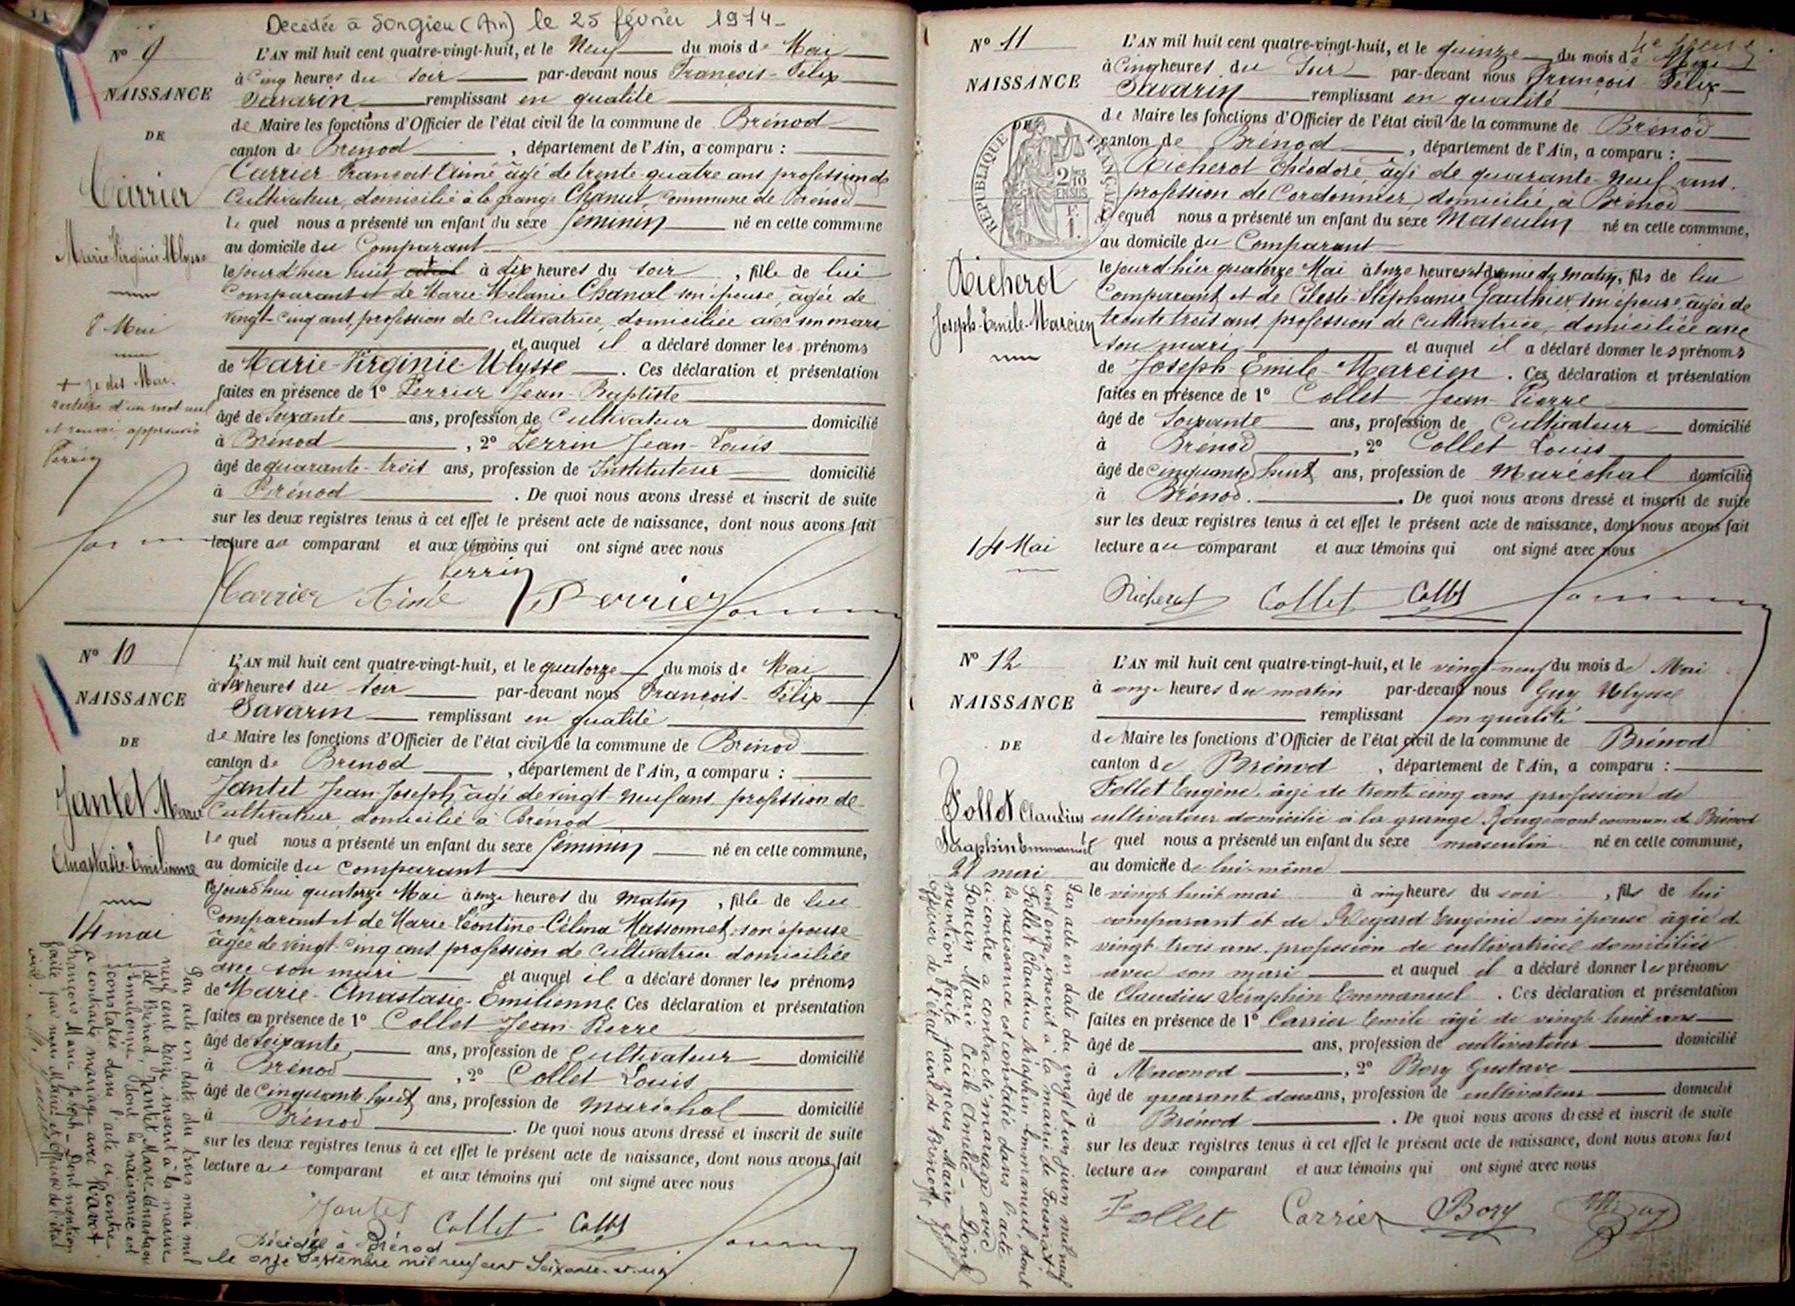 Décédée à Songieu (Ain) le 25 février 1974
N° 9
NAISSANCE
DE
Carrier
Marie Virginie Ulysse
8 Mai
+ je dis Mai.
Perrin
L'AN mil huit cent quatre-vingt-huit, et le Neuf du mois de Mai
à Cinq heures du soir par-devant nous François-Félix
Savarin remplissant en qualité
de Maire les fonctions d'Officier de l'état civil de la commune de Brénod
canton de Brénod, département de l'Ain, a comparu :
Carrier François Aimé âgé de trente quatre ans profession de
Cultivateur, domicilié à la grange Chanut, Commune de Brénod
le quel nous a présenté un enfant du sexe féminin né en cette commune
au domicile du Comparant
le jourd'hier huit à dix heures du soir, fille de lui
Comparant et de Marie Mélanie Chanal son épouse, âgée de
vingt-cinq ans, profession de Cultivatrice, domiciliée avec son mari
et auquel il a déclaré donner les prénoms
de Marie-Virginie Ulysse. Ces déclaration et présentation
faites en présence de 1° Perrier Jean-Baptiste
âgé de Soixante ans, profession de Cultivateur domicilié
à Brénod, 2° Perrin Jean-Louis
âgé de quarante-trois ans, profession de Instituteur domicilié
à Brénod. De quoi nous avons dressé et inscrit de suite
sur les deux registres tenus à cet effet le présent acte de naissance, dont nous avons fait
lecture au comparant et aux témoins qui ont signé avec nous
Perrin
Carrier Aimé Perrier
N° 10
NAISSANCE
DE
Jantet Marie
Anastasie-Emilienne
14 mai
Par acte en date du trois mai mil
neuf cent treize inscrit à la mairie
de Brénod, Jantet Marie Anastasie
Emilienne, dont la naissance est
constatée dans l'acte ci-contre
a contracté mariage avec Ravot
François Marie Joseph. Dont mention
faite par nous Maire et officier de l'état
civil.
L'AN mil huit cent quatre-vingt-huit, et le quatorze du mois de Mai
à six heures du soir par-devant nous François-Félix
Savarin remplissant en qualité
de Maire les fonctions d'Officier de l'état civil de la commune de Brénod
canton de Brénod, département de l'Ain, a comparu :
Jantet Jean-Joseph, âgé de vingt-neuf ans profession de
Cultivateur domicilié à Brénod
le quel nous a présenté un enfant du sexe féminin né en cette commune,
au domicile du comparant
le jourd'hui quatorze Mai à onze heures du matin, fille de lui
Comparant et de Marie-Léontine-Célina Massonnet, son épouse
âgée de vingt-cinq ans, profession de Cultivatrice domiciliée
avec son mari et auquel il a déclaré donner les prénoms
de Marie-Anastasie-Emilienne Ces déclaration et présentation
faites en présence de 1° Collet Jean-Pierre
âgé de Soixante ans, profession de Cultivateur domicilié
à Brénod, 2° Collet Louis
âgé de Cinquante-huit ans, profession de Maréchal domicilié
à Brénod. De quoi nous avons dressé et inscrit de suite
sur les deux registres tenus à cet effet le présent acte de naissance, dont nous avons fait
lecture au comparant et aux témoins qui ont signé avec nous
Jantet Collet Collet
Décédée à Brénod
le onze Septembre mil neuf cent Soixante-et-un
N° 11
NAISSANCE
DE
RÉPUBLIQUE FRANÇAISE
2/10 EN SUS
Richerot
Joseph-Emile-Marcien
14 Mai
L'AN mil huit cent quatre-vingt-huit, et le quinze du mois de Mai
à Cinq heures du Soir par-devant nous François Félix
Savarin remplissant en qualité
de Maire les fonctions d'Officier de l'état civil de la commune de Brénod
canton de Brénod, département de l'Ain, a comparu :
Richerot Théodore âgé de quarante-neuf ans,
profession de Cordonnier, domicilié à Brénod
lequel nous a présenté un enfant du sexe Masculin né en cette commune,
au domicile du Comparant
le jourd'hier quatorze Mai à onze heures et demie du matin, fils de lui
Comparant et de Céleste-Stéphanie Gauthier son épouse âgée de
trente trois ans, profession de cultivatrice, domiciliée avec
son mari et auquel il a déclaré donner les prénoms
de Joseph-Emile-Marcien. Ces déclaration et présentation
faites en présence de 1° Collet Jean-Pierre
âgé de Soixante ans, profession de Cultivateur domicilié
à Brénod, 2° Collet Louis
âgé de cinquante huit ans, profession de Maréchal domicilié
à Brénod. De quoi nous avons dressé et inscrit de suite
sur les deux registres tenus à cet effet le présent acte de naissance, dont nous avons fait
lecture au comparant et aux témoins qui ont signé avec nous
Richerot Collet Collet
N° 12
NAISSANCE
DE
Follet Claudius
Séraphin Emmanuel
28 mai
Par acte en date du vingt et un juin mil neuf
cent onze, inscrit à la mairie de
Follet Claudius Séraphin Emmanuel, dont
la naissance est constatée dans l'acte
ci-contre a contracté mariage avec
Poncin Marie Cécile Amélie - Dont
mention faite par nous Maire et
officier de l'état civil de Brénod
L'AN mil huit cent quatre-vingt-huit, et le vingt-neuf du mois de Mai
à onze heures du matin par-devant nous Guy Ulysse
remplissant en qualité
de Maire les fonctions d'Officier de l'état civil de la commune de Brénod
canton de Brénod, département de l'Ain, a comparu :
Follet Eugène, âgé de trente cinq ans profession de
cultivateur domicilié à la grange Rougemont commune de Brénod
quel nous a présenté un enfant du sexe masculin né en cette commune,
au domicile de lui-même
le vingt huit mai à cinq heures du soir, fils de lui
comparant et de Regard Eugénie son épouse âgée de
vingt trois ans, profession de cultivatrice domiciliée
avec son mari et auquel il a déclaré donner les prénoms
de Claudius Séraphin Emmanuel. Ces déclaration et présentation
faites en présence de 1° Carrier Emile âgé de vingt-huit ans
âgé de ans, profession de cultivateur domicilié
à Maconod, 2° Bory Gustave
âgé de quarant deux ans, profession de cultivateur domicilié
à Brénod. De quoi nous avons dressé et inscrit de suite
sur les deux registres tenus à cet effet le présent acte de naissance, dont nous avons fait
lecture au comparant et aux témoins qui ont signé avec nous
Follet Carrier Bory